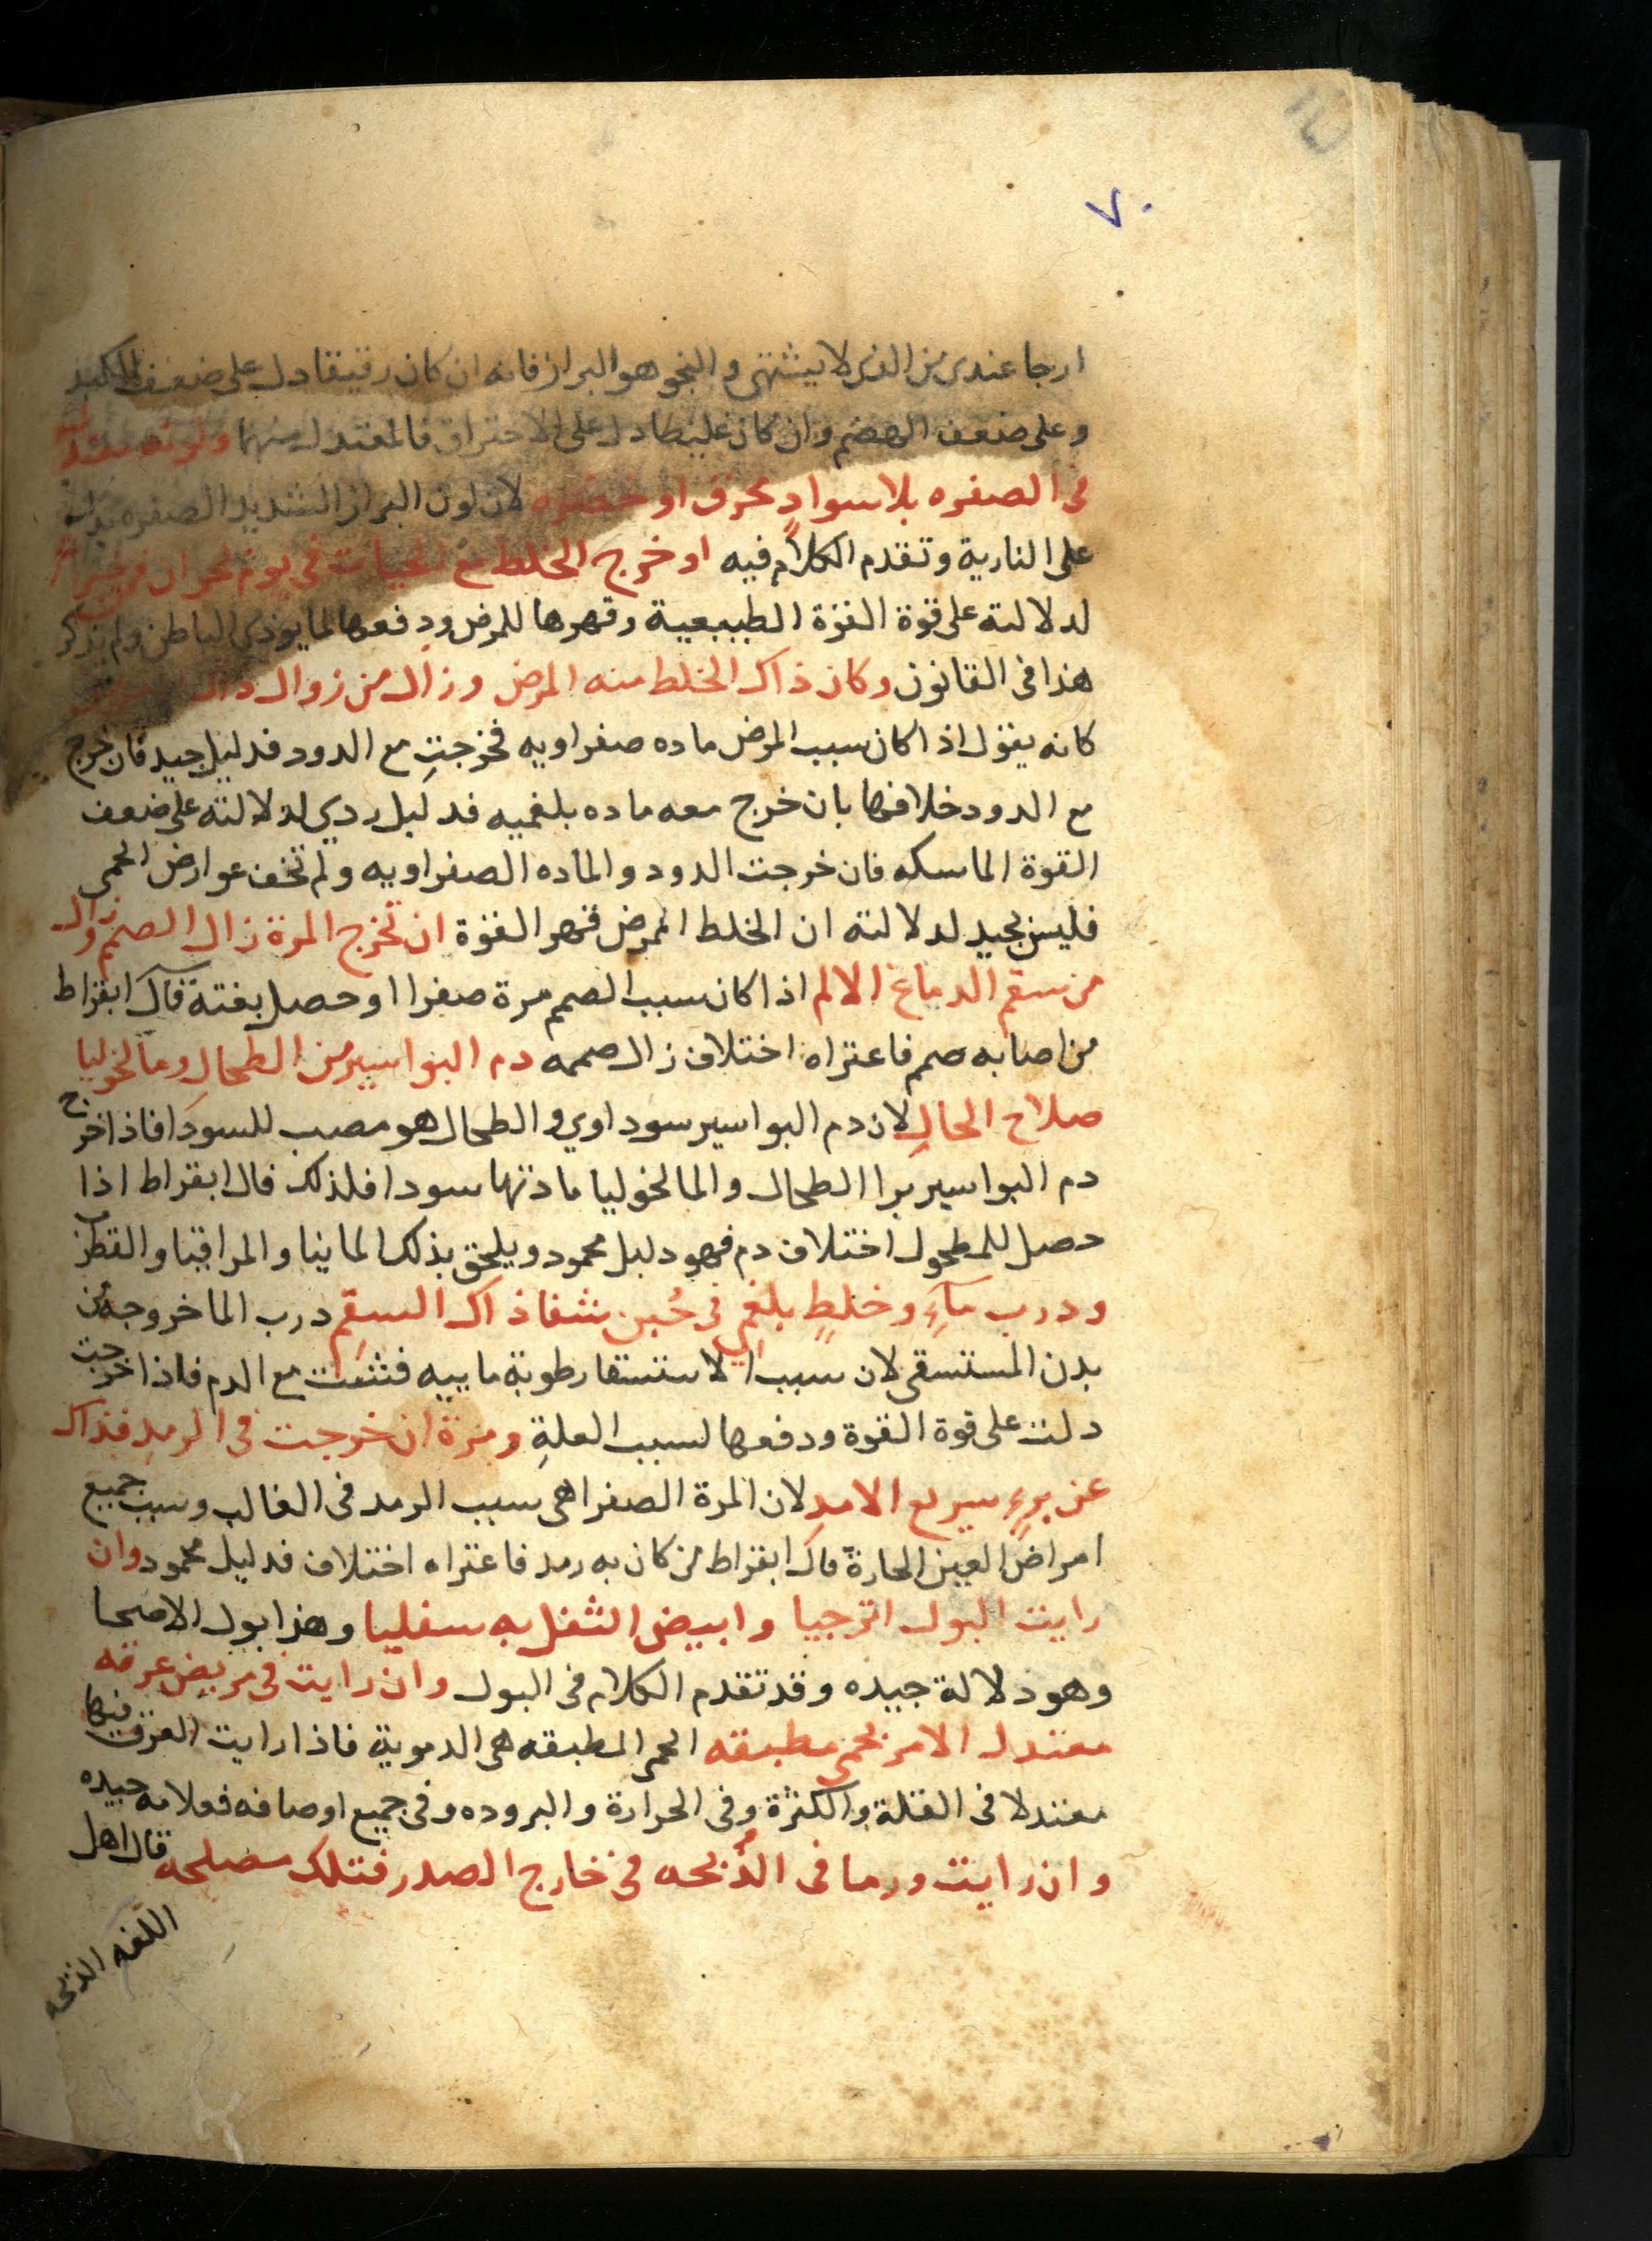 ٧٠
ارجا عندي من الذي لا يشتهي والنجو هو البراز فانه ان كان رقيقا دل على ضعف الكبد
وعلى ضعف الهضم وان كان غليظا دل على الاحتراق فالمعتدل منهما ولونه
في الصفره بلا سواد محرق او خضره لان لون البراز الشديد الصفره يدل
على النارية وتقدم الكلام فيه او خرج الخلط مع الحيات في يوم بحران
لدلالته على قوة القوة الطبيعية وقهرها للمرض ودفعها لما يوذي الباطن ولم يذكر
هذا في القانون وكان ذاك الخلط منه المرض وزال من زوال ذاك
كانه يقول اذا كان سبب المرض ماده صفراويه فخرجت مع الدود فدليل جيد فان خرج
مع الدود خلافها بان خرج معه ماده بلغميه فدليل ردي لدلالته على ضعف
القوة الماسكه فان خرجت الدود والماده الصفراويه ولم تخف عوارض الحمى
فليس بجيد لدلالته ان الخلط الممرض قهر القوة ان تخرج المرة زال الصمم وزال
من سقم الدماغ الالم اذا كان سبب الصمم مرة صفرا او حصل بغتة قال ابقراط
من اصابه صمم فاعتراه اختلاف زال صممه دم البواسير من الطحال ومالخوليا
صلاح الحال لان دم البواسير سوداوي والطحال هو مصب للسودا فاذا خرج
دم البواسير برا الطحال والمالخوليا مادتها سودا فلذلك قال ابقراط اذا
حصل للمطحول اختلاف دم فهو دليل محمود ويلحق بذلك المانيا والمراقيا والقطرب
ودرب مآء وخلط بلغمي في حبن شفا ذاك السقم درب الما خروجه من
بدن المستسقي لان سبب الاستسقا رطوبة ماييه فتثبت مع الدم فاذا خرجت
دلت على قوة القوة ودفعها لسبب العلة ومرة ان خرجت في الرمد فذاك
عن برء سريع الامد لان المرة الصفرا هي سبب الرمد في الغالب وسبب جميع
امراض العين الحارة قال ابقراط من كان به رمد فاعتراه اختلاف فدليل محمود وان
رايت البول اترجيا وابيض الثفل به سفليا وهذا بول الاصحا
وهو دلالة جيده وقد تقدم الكلام في البول وان رايت في مريض عرقه
معتدل الامر بحمى مطبقه الحمى المطبقه هي الدموية فاذا رايت العرق فيها
معتدلا في القلة والكثرة وفي الحرارة والبروده وفي جميع اوصافه فعلامه جيده
وان رايت ورما في الذبحه في خارج الصدر فتلك مصلحه قال اهل
اللغه الذبحه